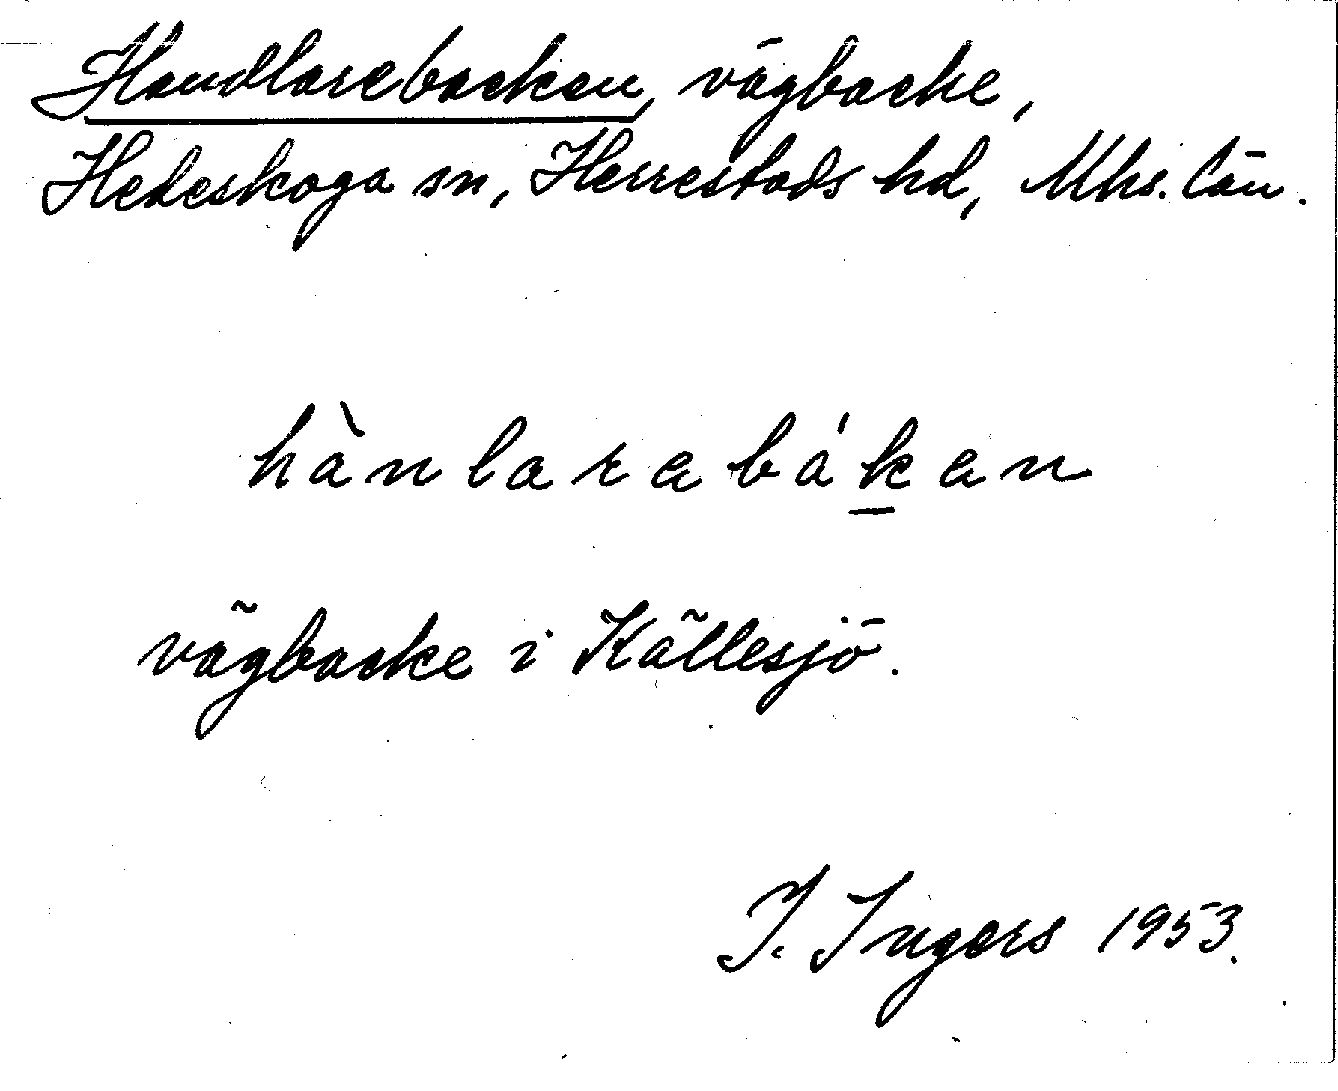 Handlarebacken, vägbacke,
Hedeskoga sn, Herrestads hd, Mhs. län.
hànlarabák̲an
vägbacke i Källesjö.
I. Ingers 1953.